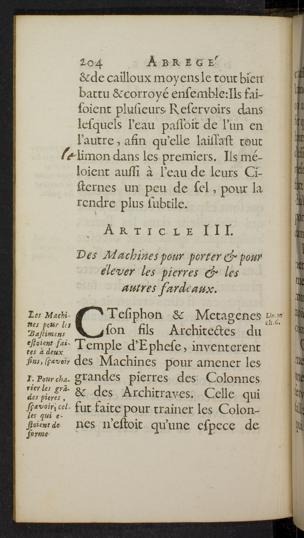 204 ABREGÉ
& de cailloux moyens le tout bien
battu & corroyé ensemble: Ils fai-
soient plusieurs Reservoirs dans
lesquels l'eau passoit de l'un en
l'autre, afin qu'elle laissast tout
le limon dans les premiers. Ils mé-
loient aussi à l'eau de leurs Ci-
sternes un peu de sel, pour la
rendre plus subtile.
ARTICLE III.
Des Machines pour porter & pour
élever les pierres & les
autres fardeaux.
CTesiphon & Metagenes
son fils Architectes du
Temple d'Ephese, inventerent
des Machines pour amener les
grandes pierres des Colonnes
& des Architraves. Celle qui
fut faite pour trainer les Colon-
nes n'estoit qu'une espece de
Les Machi-
nes pour les
Bastimens
estoient fai-
tes à deux
fins, sçavoir
I. Pour cha-
rier les grã-
des pieres,
sçavoir, cel-
les qui e-
stoient de
forme
Liv. 10
ch. 6.